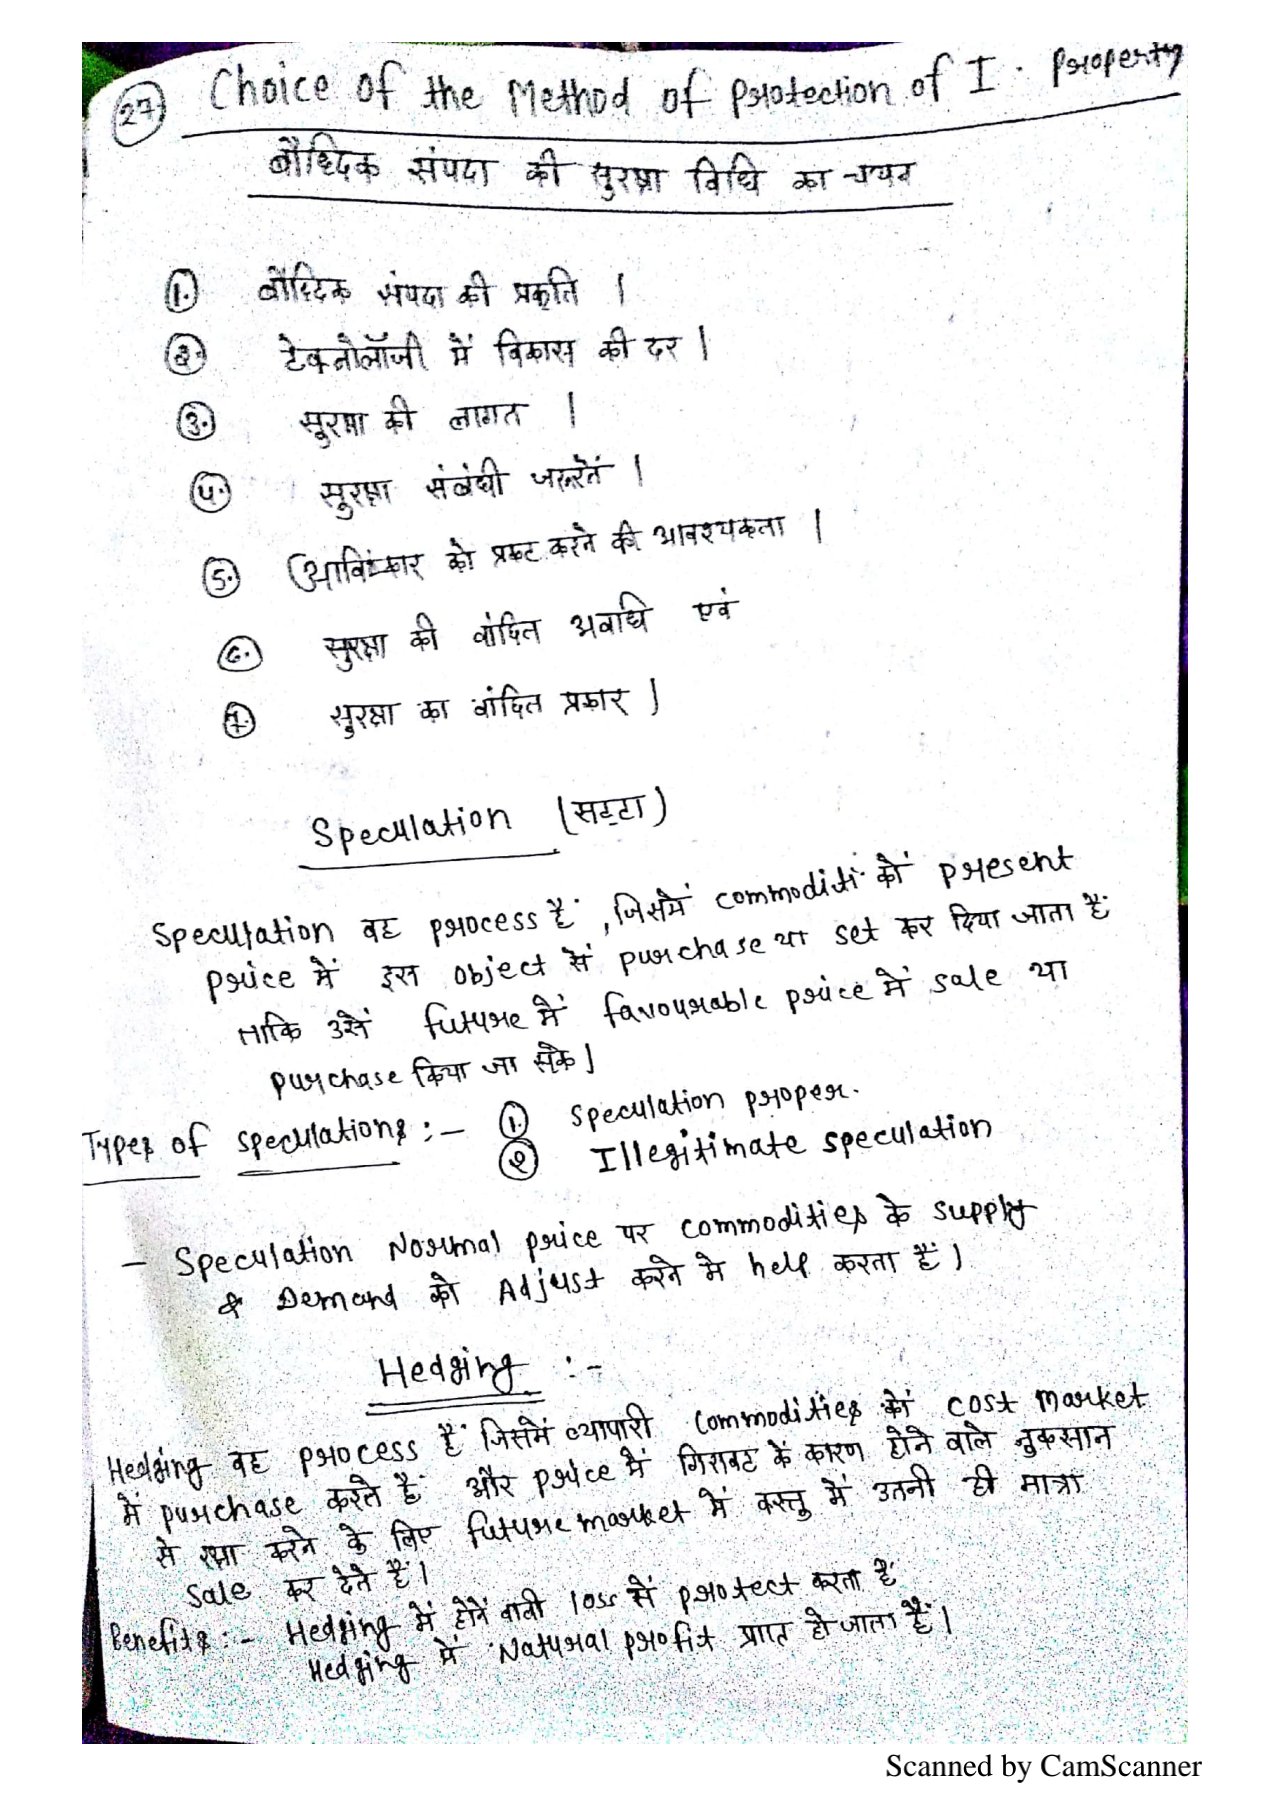 27 Choice of the Method of Protection of I. Property
बौध्दिक संपदा की सुरक्षा विधि का चयन
1. बौध्दिक संपदा की प्रकृति |
2. टेक्नोलॉजी में विकास की दर |
3. सुरक्षा की लागत |
4. सुरक्षा संबंधी जरूरतें |
5. आविष्कार को प्रकट करने की आवश्यकता |
6. सुरक्षा की वांदित अवधि एवं
7. सुरक्षा का वांदित प्रकार |
Speculation (सट्टा)
Speculation वह process हैं, जिसमें commoditi को present
price में इस object से purchase या set कर दिया जाता हैं
ताकि उसें future में favourable price में sale या
purchase किया जा सकें |
Types of speculations :- 1. speculation proper.
2 Illegitimate speculation
- Speculation Normal price पर commodities के supply
& Demand को Adjust करने मे help करता हैं |
Hedging :-
Hedging वह process हैं जिसमें व्यापारी commodities कों cost market
में purchase करते हैं और price में गिरावट कें कारण होने वाले नुकसान
से रक्षा करने के लिए future market में वस्तु में उतनी ही मात्रा
sale कर देते हैं |
Benefits :- Hedging में होनें वाली loss सें protect करता हैं
Hedging में Natural profit प्राात हो जाता हैं |
Scanned by CamScanner